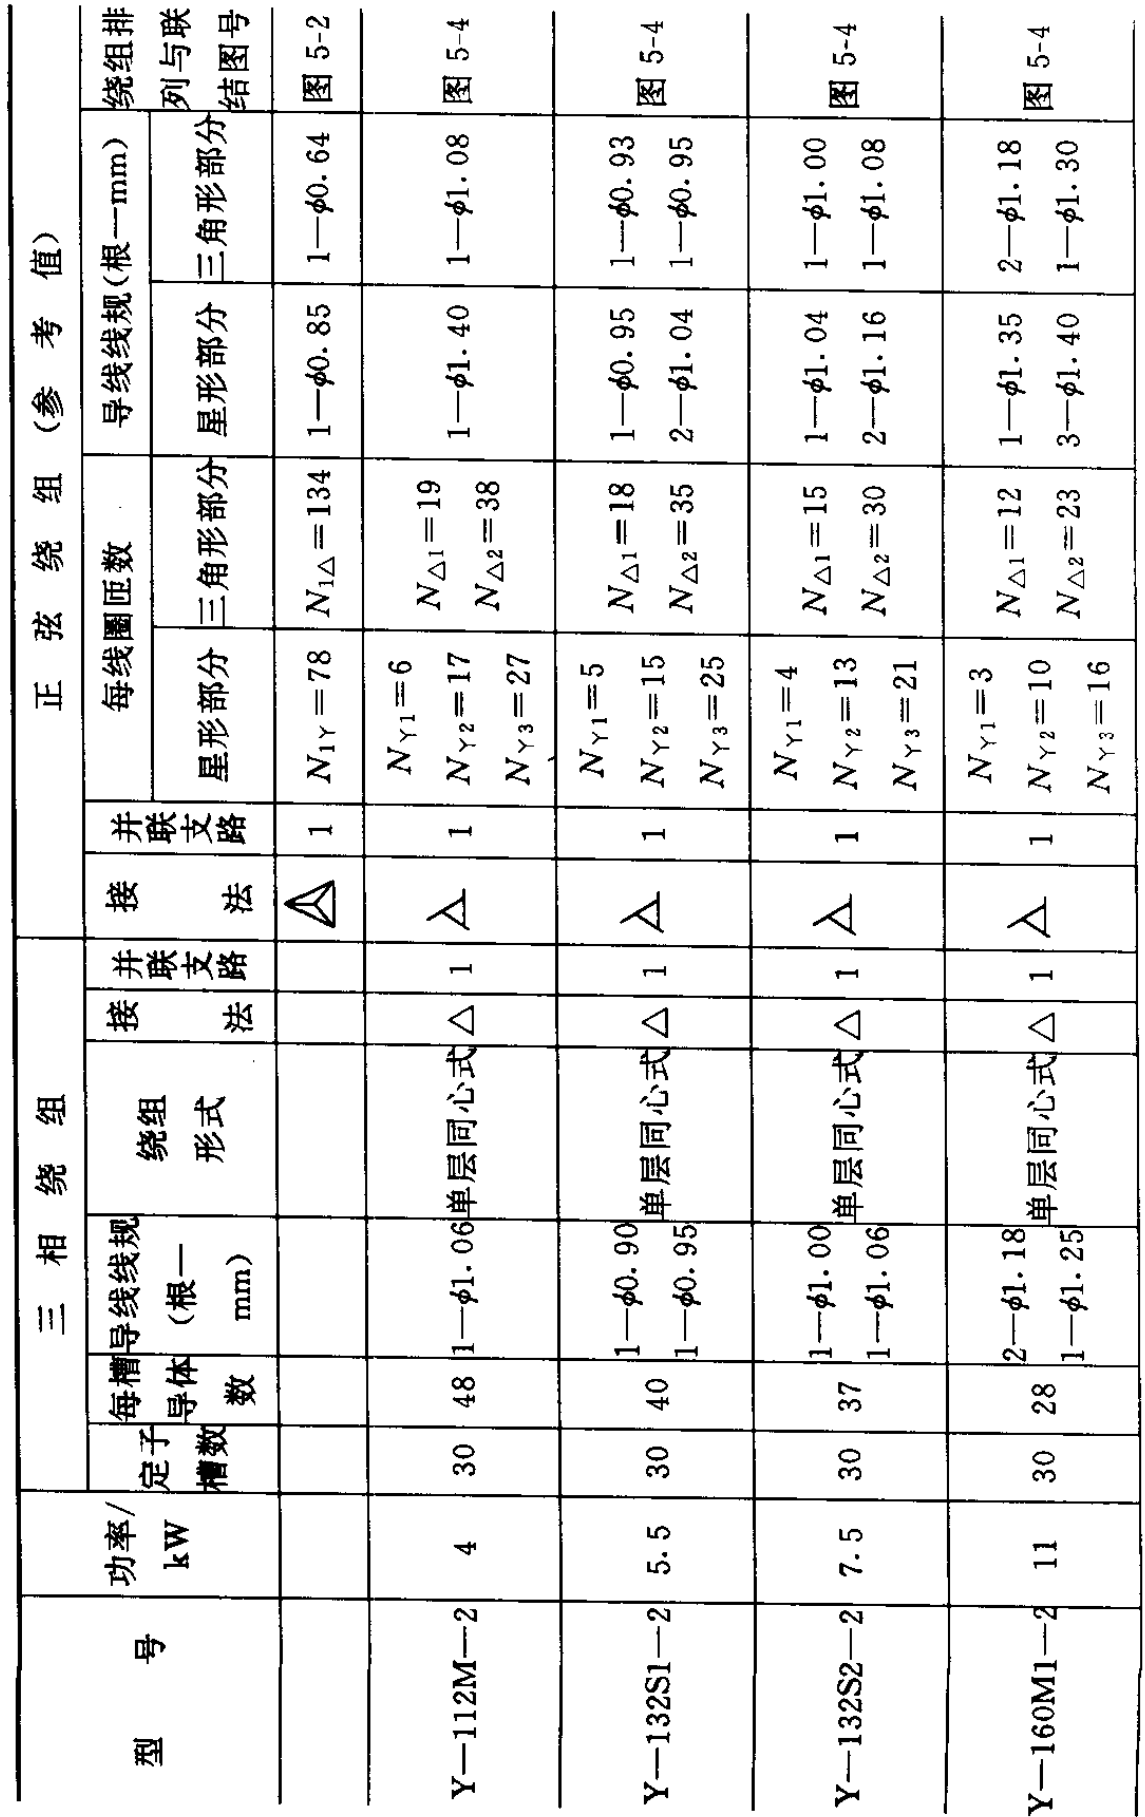 型 号
功率/
kW
三 相 绕 组
正 弦 绕 组 (参 考 值)
定子
槽数
每槽
导体
数
导线线规
(根—
mm)
绕组
形式
接 法
并联支路
接 法
并联支路
每线圈匝数
星形部分
三角形部分
导线线规(根—mm)
星形部分
三角形部分
绕组排
列与联
结图号
1
N1Y=78
N1△=134
1—ϕ0.85
1—ϕ0.64
图 5-2
Y—112M—2
4
30
48
1—ϕ1.06
单层同心式
△
1
1
NY1=6
NY2=17
NY3=27
N△1=19
N△2=38
1—ϕ1.40
1—ϕ1.08
图 5-4
Y—132S1—2
5.5
30
40
1—ϕ0.90
1—ϕ0.95
单层同心式
△
1
1
NY1=5
NY2=15
NY3=25
N△1=18
N△2=35
1—ϕ0.95
2—ϕ1.04
1—ϕ0.93
1—ϕ0.95
图 5-4
Y—132S2—2
7.5
30
37
1—ϕ1.00
1—ϕ1.06
单层同心式
△
1
1
NY1=4
NY2=13
NY3=21
N△1=15
N△2=30
1—ϕ1.04
2—ϕ1.16
1—ϕ1.00
1—ϕ1.08
图 5-4
Y—160M1—2
11
30
28
2—ϕ1.18
1—ϕ1.25
单层同心式
△
1
1
NY1=3
NY2=10
NY3=16
N△1=12
N△2=23
1—ϕ1.35
3—ϕ1.40
2—ϕ1.18
1—ϕ1.30
图 5-4